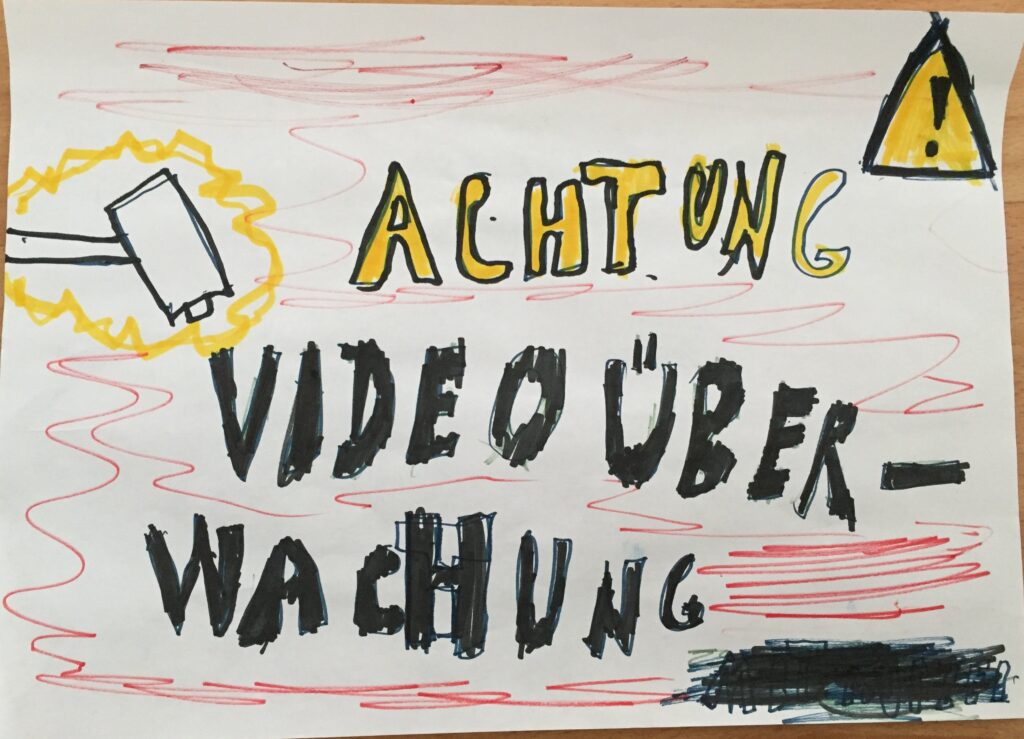 !
ACHTUNG
VIDEOÜBER-
WACHUNG